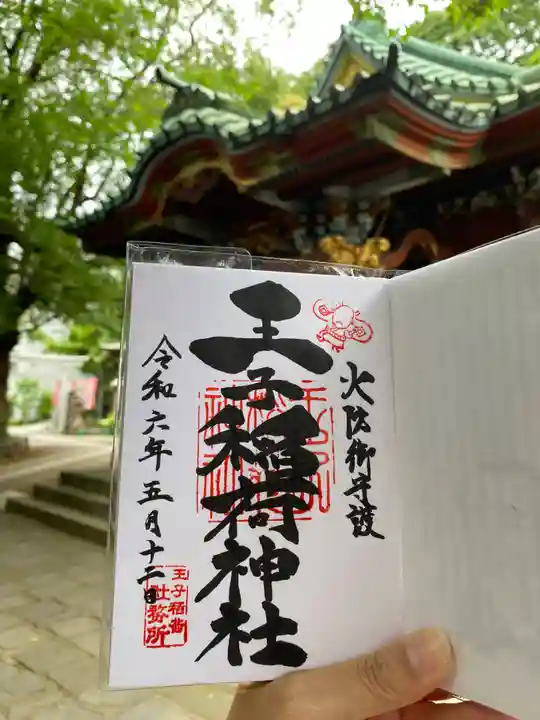 火防御守護
王子稲荷神社
令和六年五月十二日
王子稲荷
社務所